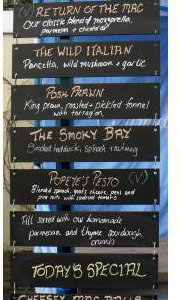 (V) RETURN OF THE MAC
Our classic blend of mozzarella,
parmesan + cheddar
THE WILD ITALIAN
Pancetta, wild mushroom + garlic
POSH PRAWN
King prawn, roasted + pickled fennel
with tarragon
THE SMOKY BAY
Smoked haddock, spinach + nutmeg
POPEYE'S PESTO (V)
Blended spinach, goats cheese, peas and
pine nuts with
All served with our homemade
parmesan and thyme sourdough
crumb
TODAY'S SPECIAL
CHEESEY MAC BALLS